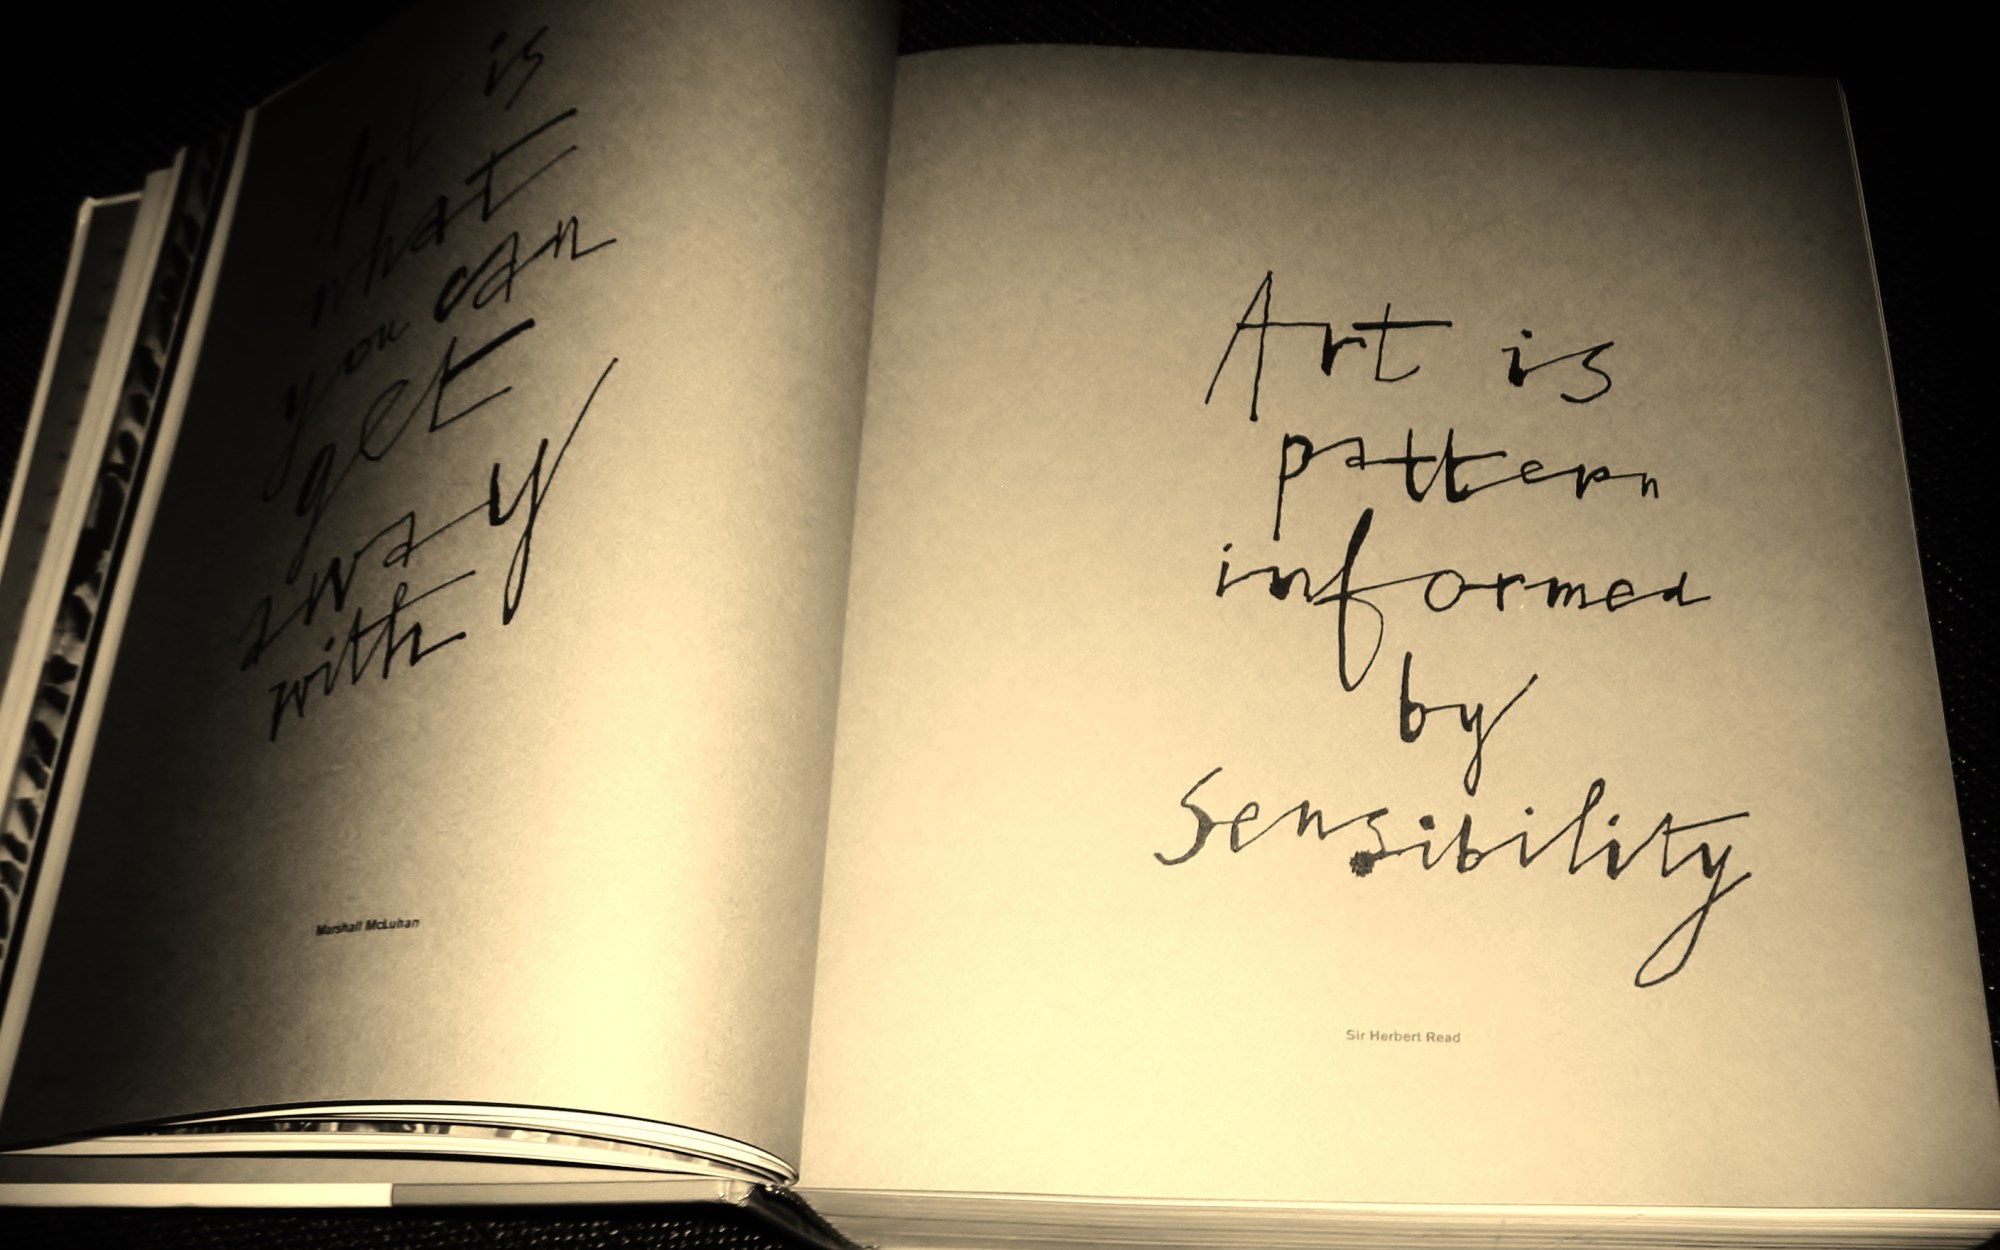 Art is
what
you can
get
away
with
Marshall McLuhan
Art is
pattern
informed
by
Sensibility
Sir Herbert Read